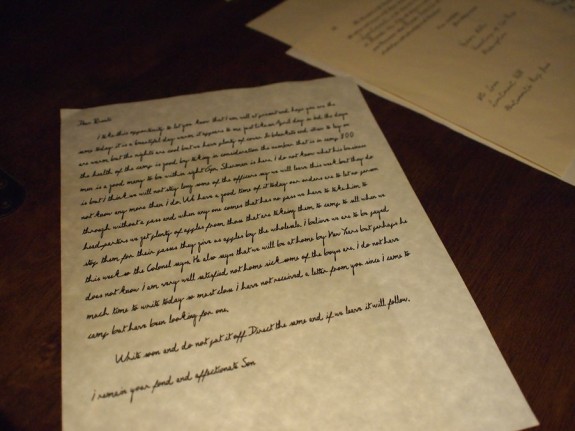 Dear Parents
I take this opportunity to let you know that I am well at present and hope you are the
same today. it is a beautiful day. warm. it appears to me just like an April day in Ind. the days
are warm but the nights are cool but we have plenty of cover. 2 blankets and straw to lay on
the health of the camp is good by taking in consideration the number that is in camp 800
men is a good many to be within sight Gen. Shierman is here. I do not know what his business
is but I think we will not stop long some of the officers say we will leave this week but they do
not know any more than I do. We have a good time of it today our orders are to let no person
through without a pass and when any one comes that has no pass we have to take him to
head quarters we get plenty of apples from those that are taking them to camp to sell when we
stop them for their passes they give us apples by the wholesale. I believe we are to be payed
this week so the Colonel says. He also says that we will be at home by New Years but perhaps he
does not know I am very well satisfied, not home sick some of the boys are. I do not have
much time to write today so must close I have not received a letter from you since I came to
camp but have been looking for one.
Write soon and do not put it off. Direct the same and if we leave it will follow.
i remain your fond and affectionate Son